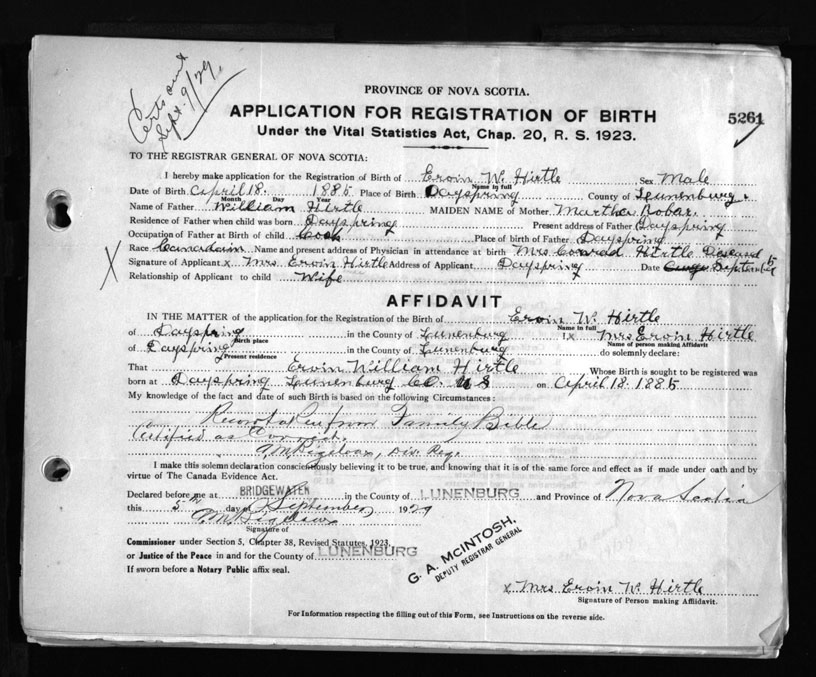 Certs sent
Sept. 9/29.
PROVINCE OF NOVA SCOTIA.
APPLICATION FOR REGISTRATION OF BIRTH
5261
Under the Vital Statistics Act, Chap. 20, R. S. 1923.
TO THE REGISTRAR GENERAL OF NOVA SCOTIA:
I hereby make application for the Registration of Birth of Ervin W. Hirtle Sex Male
Name in full
Date of Birth April 18. 1885 Place of Birth Dayspring County of Lunenburg.
Month Day Year
Name of Father William Hirtle MAIDEN NAME of Mother Martha Robar.
Residence of Father when child was born Dayspring Present address of Father Dayspring
Occupation of Father at Birth of child Cook Place of birth of Father Dayspring
X Race Canadain Name and present address of Physician in attendance at birth Mrs Conrad Hirtle Diseased
Signature of Applicant x Mrs Ervin Hirtle Address of Applicant Dayspring Date September 5
Relationship of Applicant to child Wife
AFFIDAVIT
IN THE MATTER of the application for the Registration of the Birth of Ervin W. Hirtle
Name in full
of Dayspring in the County of Lunenburg I x Mrs Ervin Hirtle
Birth place Name of person making Affidavit
of Dayspring in the County of Lunenburg do solemnly declare:
Present residence
That Ervin William Hirtle Whose Birth is sought to be registered was
born at Dayspring Lunenburg Co. N S on April 18 1885
My knowledge of the fact and date of such Birth is based on the following Circumstances:
Record taken from Family Bible
Certified as Correct.
Div Reg.
I make this solemn declaration conscientiously believing it to be true, and knowing that it is of the same force and effect as if made under oath and by
virtue of The Canada Evidence Act.
Declared before me at BRIDGEWATER in the County of LUNENBURG and Province of Nova Scotia
this 5th day of September 1929
Signature of
Commissioner under Section 5, Chapter 38, Revised Statutes, 1923.
or Justice of the Peace in and for the County of LUNENBURG
If sworn before a Notary Public affix seal.
G. A. McINTOSH,
DEPUTY REGISTRAR GENERAL
x Mrs Ervin W. Hirtle
Signature of Person making Affidavit.
For Information respecting the filling out of this Form, see Instructions on the reverse side.